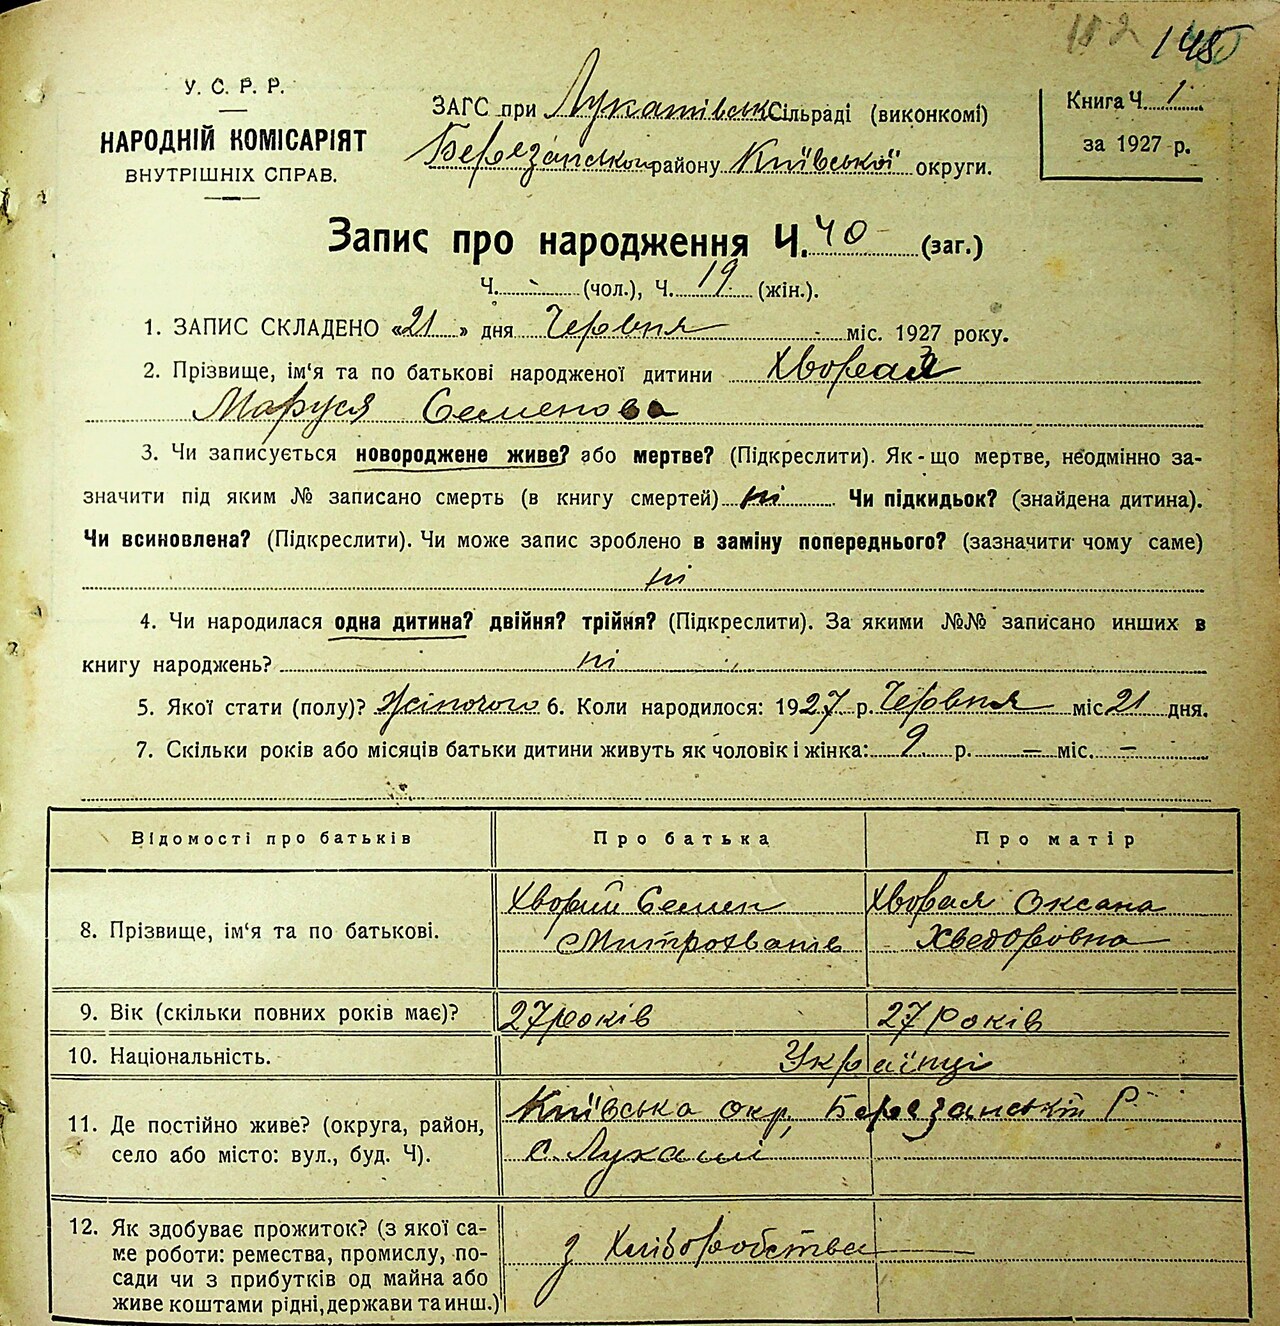 182 145
У. С. Р. Р.
НАРОДНІЙ КОМІСАРІЯТ
ВНУТРІШНІХ СПРАВ.
ЗАГС при Лукашівськ Сільраді (виконкомі)
Березанського району Київської округи.
Книга Ч. 1
за 1927 р.
Запис про народження Ч. 40 (заг.)
Ч. - (чол.), Ч. 19 (жін.).
1. ЗАПИС СКЛАДЕНО «21» дня Червня міс. 1927 року.
2. Прізвище, ім'я та по батькові народженої дитини Хворая
Маруся Семенова
3. Чи записується новороджене живе? або мертве? (Підкреслити). Як-що мертве, неодмінно за-
значити під яким № записано смерть (в книгу смертей) ні Чи підкидьок? (знайдена дитина).
Чи всиновлена? (Підкреслити). Чи може запис зроблено в заміну попереднього? (зазначити чому саме)
ні
4. Чи народилася одна дитина? двійня? трійня? (Підкреслити). За якими №№ записано инших в
книгу народжень? ні
5. Якої стати (полу)? Жіночого 6. Коли народилося: 1927 р. Червня міс. 21 дня.
7. Скільки років або місяців батьки дитини живуть як чоловік і жінка: 9 р. — міс. —
Відомості про батьків Про батька Про матір
8. Прізвище, ім'я та по батькові.
Хворий Семен
Митрохванів
Хворая Оксана
Хведоровна
9. Вік (скільки повних років має)? 27 років 27 років
10. Національність. Українці
11. Де постійно живе? (округа, район,
село або місто: вул., буд. Ч).
Київська окр, Березанський Р
с. Лукаші
12. Як здобуває прожиток? (з якої са-
ме роботи: ремества, промислу, по-
сади чи з прибутків од майна або
живе коштами рідні, держави та инш.)
з Хліборобства